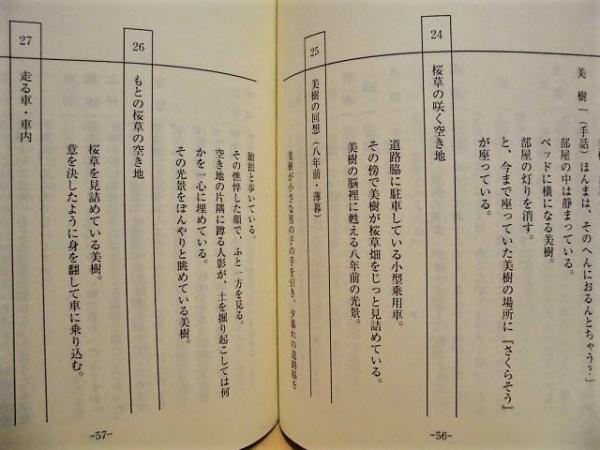 美樹「(手話)ほんまは、そのへんにおるんとちゃう?」
部屋の中は静まっている。
ベッドに横になる美樹。
部屋の灯りを消す。
と、今まで座っていた美樹の場所に『さくらそう』
が座っている。
24 桜草の咲く空き地
道路脇に駐車している小型乗用車。
その傍で美樹が桜草畑をじっと見詰めている。
美樹の脳裡に甦える八年前の光景。
25 美樹の回想(八年前・薄暮)
美樹が小さな男の子の手を引き、夕暮れの道路脇を
踉踉と歩いている。
その憔悴した顔で、ふと一方を見る。
空き地の片隅に蹲る人影が、土を掘り起こしては何
かを一心に埋めている。
その光景をぼんやりと眺めている美樹。
26 もとの桜草の空き地
桜草を見詰めている美樹。
意を決したように身を翻して車に乗り込む。
27 走る車・車内
-56-
-57-